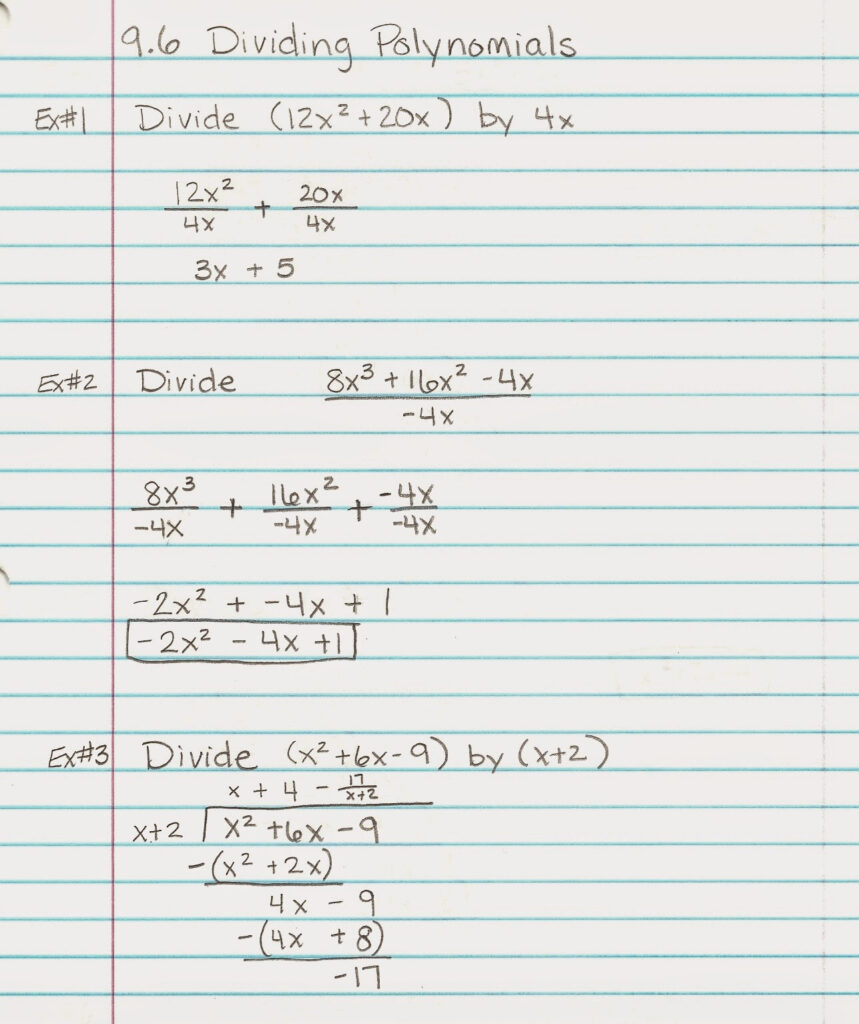 9.6 Dividing Polynomials
Ex#1 Divide (12x² + 20x) by 4x
12x² + 20x
4x 4x
3x + 5
Ex#2 Divide 8x³ + 16x² - 4x
-4x
8x³ + 16x² + -4x
-4x -4x -4x
-2x² + -4x + 1
-2x² - 4x + 1
Ex#3 Divide (x² + 6x - 9) by (x+2)
x + 4 - 17/x+2
x+2 x² + 6x - 9
-(x² + 2x)
4x - 9
-(4x + 8)
-17